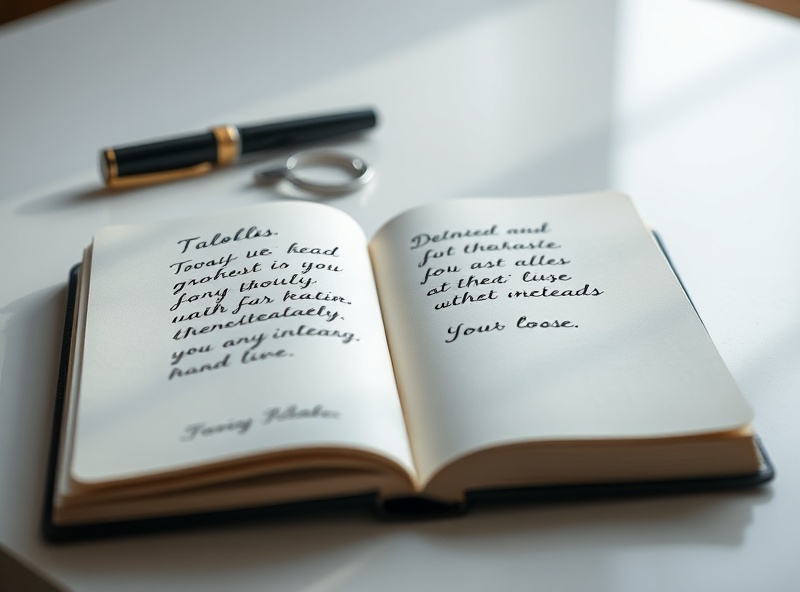 Talolles.
Tovay ue head
grohest is you
fany thouly
uath far katin.
thencitcalaely.
you any intearg.
hand live.
Delnied and
fut tharasie
fou ast alles
at thei luse
uthet meteads
Your loose.